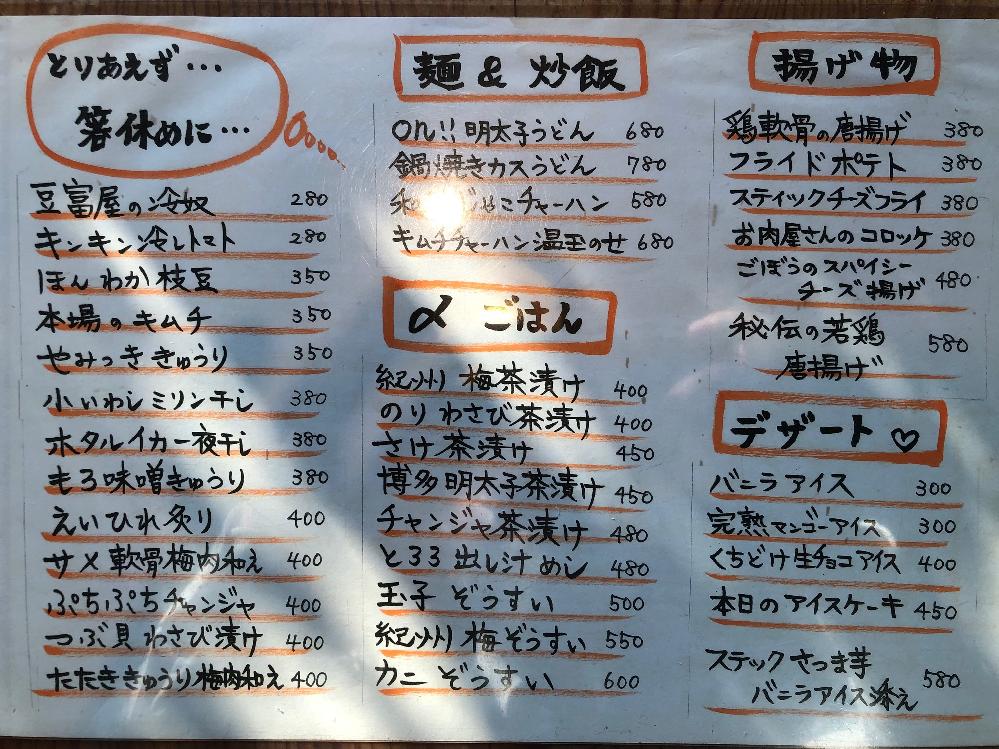 とりあえず…
箸休めに…
豆富屋の冷奴 280
キンキン冷しトマト 280
ほんわか枝豆 350
本場のキムチ 350
やみつききゅうり 350
小いわしミリン干し 380
ホタルイカ一夜干し 380
もろ味噌きゅうり 380
えいひれ炙り 400
サメ軟骨梅肉和え 400
ぷちぷちチャンジャ 400
つぶ貝わさび漬け 400
たたききゅうり梅肉和え 400
麺 & 炒飯
on!! 明太子うどん 680
鍋焼きカスうどん 780
じゃこチャーハン 580
キムチチャーハン温玉のせ 680
〆 ごはん
紀州梅茶漬け 400
のりわさび茶漬け 400
さけ茶漬け 450
博多明太子茶漬け 450
チャンジャ茶漬け 480
とろろ出し汁めし 480
玉子ぞうすい 500
紀州梅ぞうすい 550
カニぞうすい 600
揚げ物
鶏軟骨の唐揚げ 380
フライドポテト 380
スティックチーズフライ 380
お肉屋さんのコロッケ 380
ごぼうのスパイシー
チーズ揚げ 480
秘伝の若鶏
唐揚げ 580
デザート♡
バニラアイス 300
完熟マンゴーアイス 300
くちどけ生チョコアイス 400
本日のアイスケーキ 450
ステックさつま芋
バニラアイス添え 580